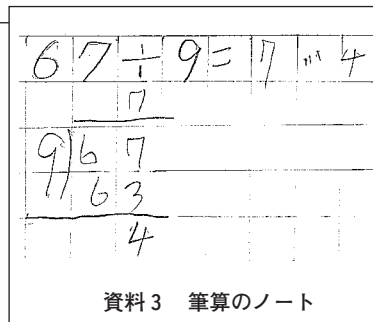 67÷9=7…4
7
9)67
63
4
資料3 筆算のノート